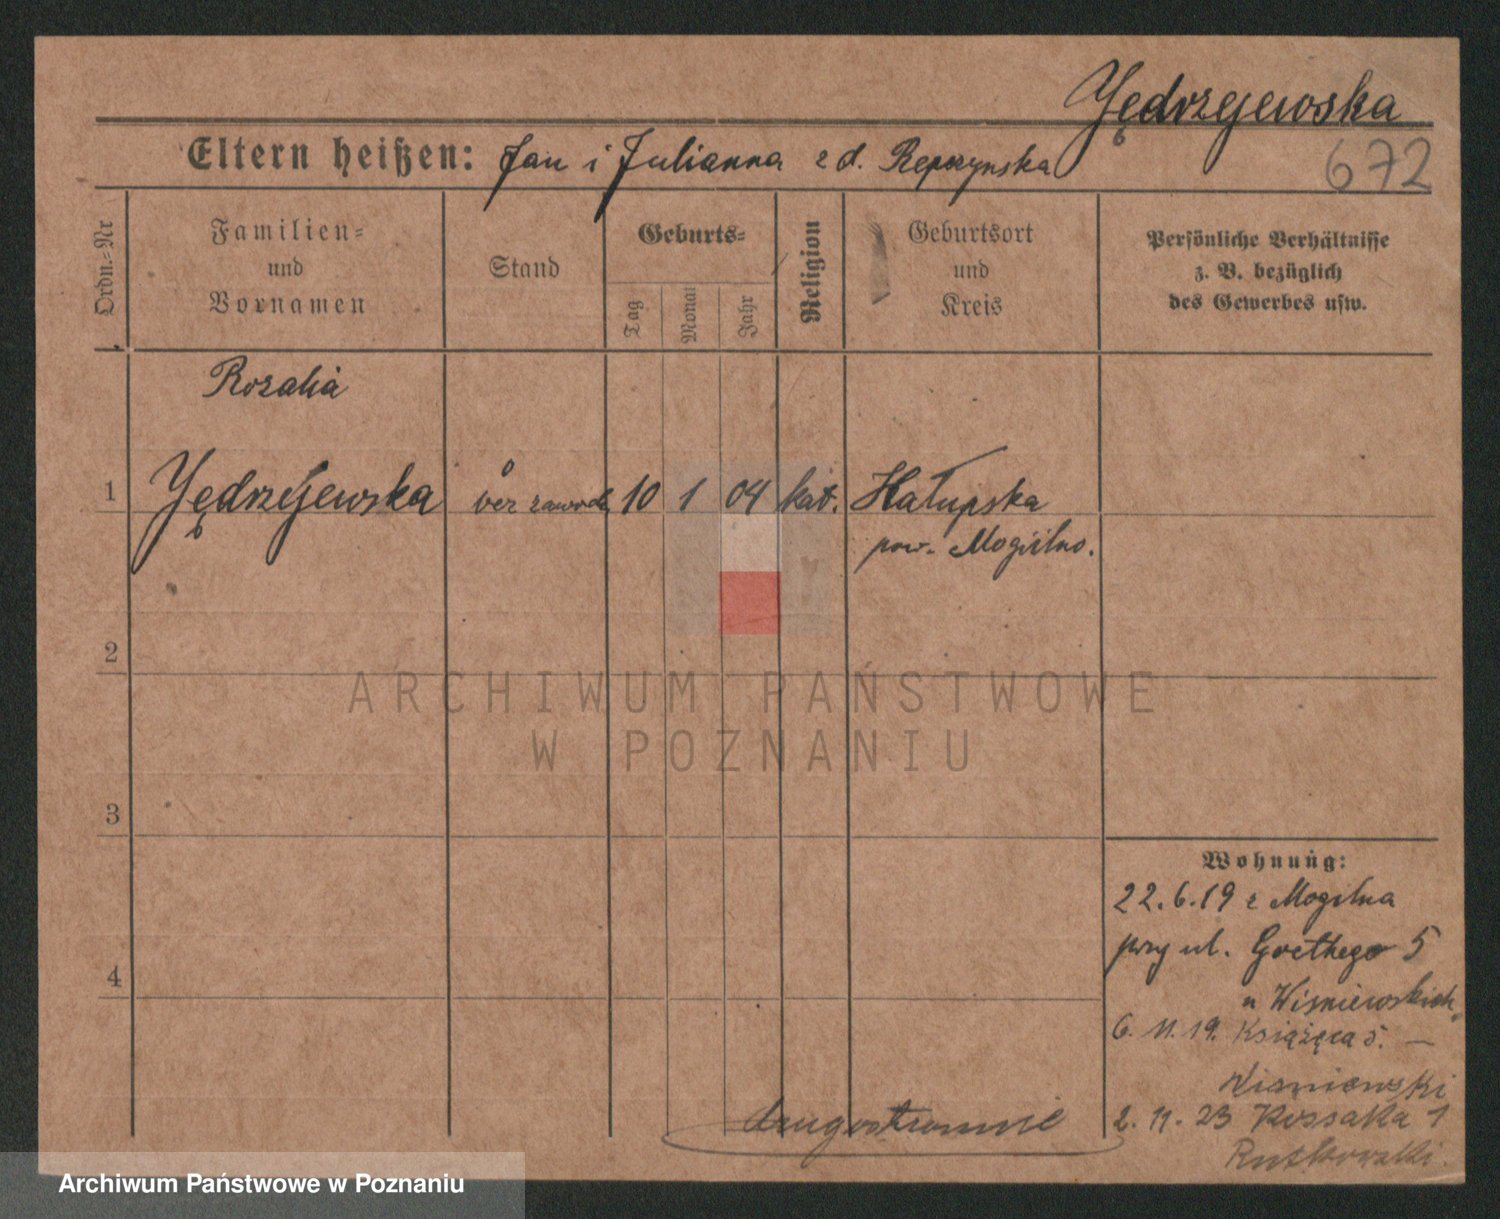 Jędrzejewska
Eltern heißen: Jan i Julianna z d. Repczynska
672
Ordn.-Nr
Familien-
und
Vornamen
Stand
Geburts-
Tag
Monat
Jahr
Religion
Geburtsort
und
Kreis
Persönliche Verhältnisse
z. B. bezüglich
des Gewerbes usw.
Rozalia
1 Jędrzejewska bez zawodu 10 1 04 kat. Hałupska
pow. Mogilno.
2
3
4
Wohnung:
22.6.19 z Mogilna
przy ul. Goethego 5
u Wisniewskich
6. 11. 19. Książęca 5. —
Wisniewski
2. 11. 23 Kossaka 1
Rutkowski.
drugostronnie
ARCHIWUM PAŃSTWOWE
W POZNANIU
Archiwum Państwowe w Poznaniu